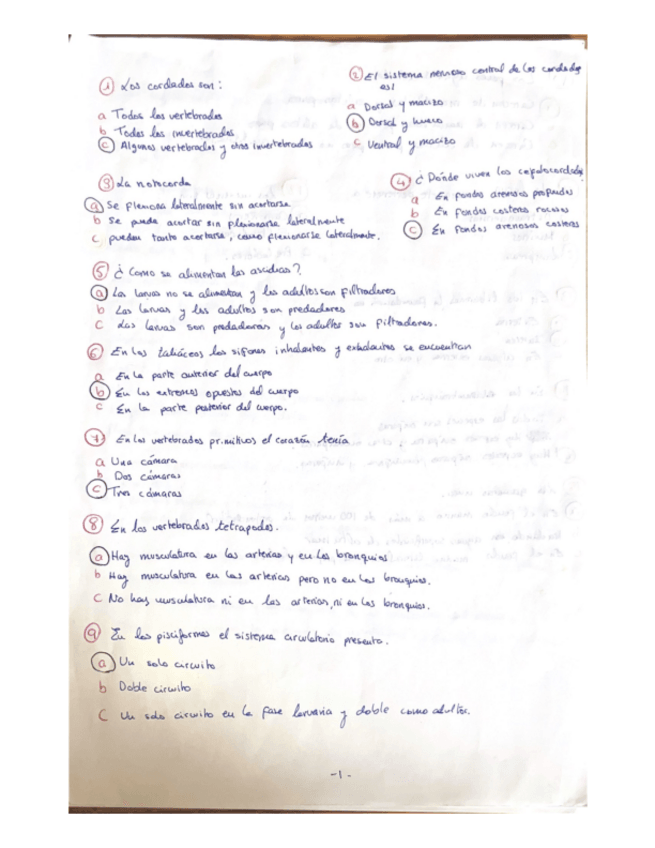 1 Los cordados son:
a Todos los vertebrados
b Todos los invertebrados
c Algunos vertebrados y otros invertebrados
2 El sistema nervioso central de los cordados
es:
a Dorsal y macizo
b Dorsal y hueco
c Ventral y macizo
3 La notocorda
a Se flexiona lateralmente sin acortarse
b Se puede acortar sin flexionarse lateralmente
c pueden tanto acortarse, como flexionarse lateralmente.
4 ¿Dónde viven los cefalocordados
a En fondos arenosos profundos
b En fondos costeros rocosos
c En fondos arenosos costeros
5 ¿Como se alimentan las ascidias?
a Las larvas no se alimentan y los adultos son filtradores
b Las larvas y los adultos son predadores
c Las larvas son predadoras y los adultos son filtradores.
6 En los taliáceos los sifones inhalantes y exhalantes se encuentran
a En la parte anterior del cuerpo
b En los extremos opuestos del cuerpo
c En la parte posterior del cuerpo.
7 En los vertebrados primitivos el corazón tenía
a Una cámara
b Dos cámaras
c Tres cámaras
8 En los vertebrados tetrapodos.
a Hay musculatura en las arterias y en los bronquios
b Hay musculatura en las arterias pero no en los bronquios.
c No hay musculatura ni en las arterias, ni en los bronquios.
9 En los pisciformes el sistema circulatorio presenta.
a Un solo circuito
b Doble circuito
c Un solo circuito en la fase larvaria y doble como adultos.
-1-